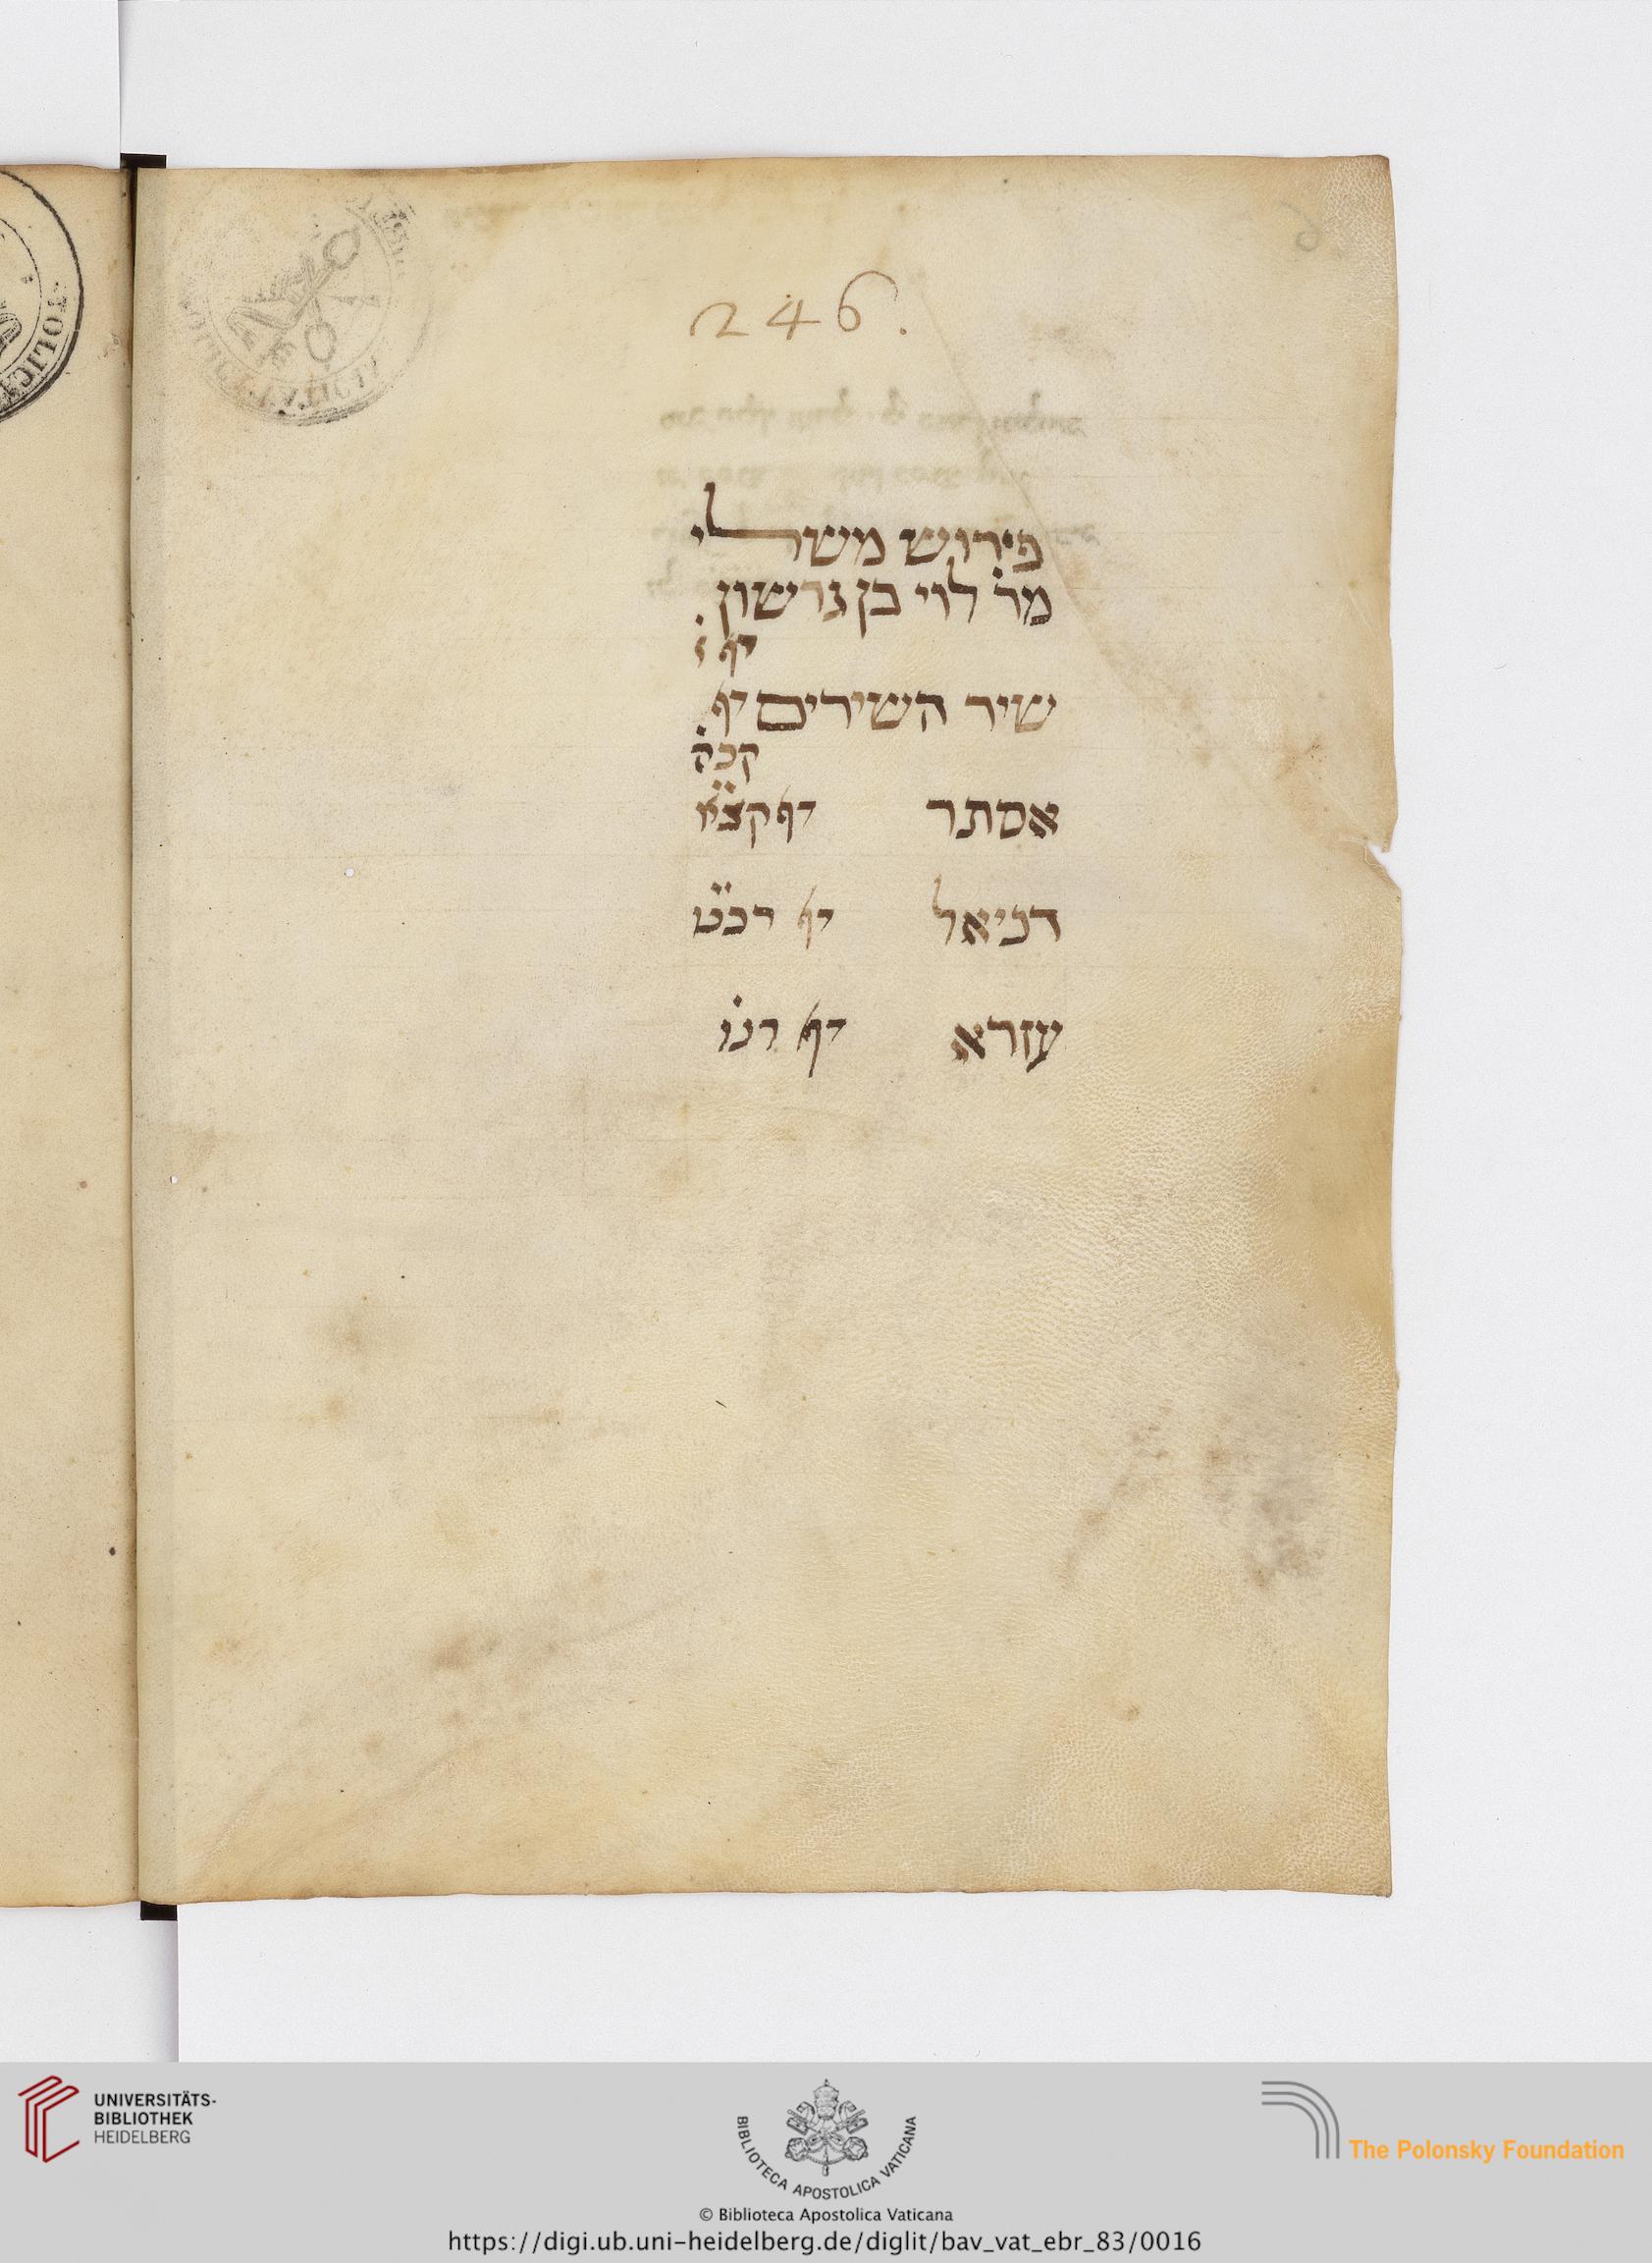 246.
פירוש משלי
מר' לוי בן גרשון
דף ז'
שיר השירים דף
קכה
אסתר דף קצ"א
דניאל דף רכ"ט
עזרא דף רנו
UNIVERSITÄTS-
BIBLIOTHEK
HEIDELBERG
BIBLIOTECA APOSTOLICA VATICANA
The Polonsky Foundation
© Biblioteca Apostolica Vaticana
https://digi.ub.uni-heidelberg.de/diglit/bav_vat_ebr_83/0016